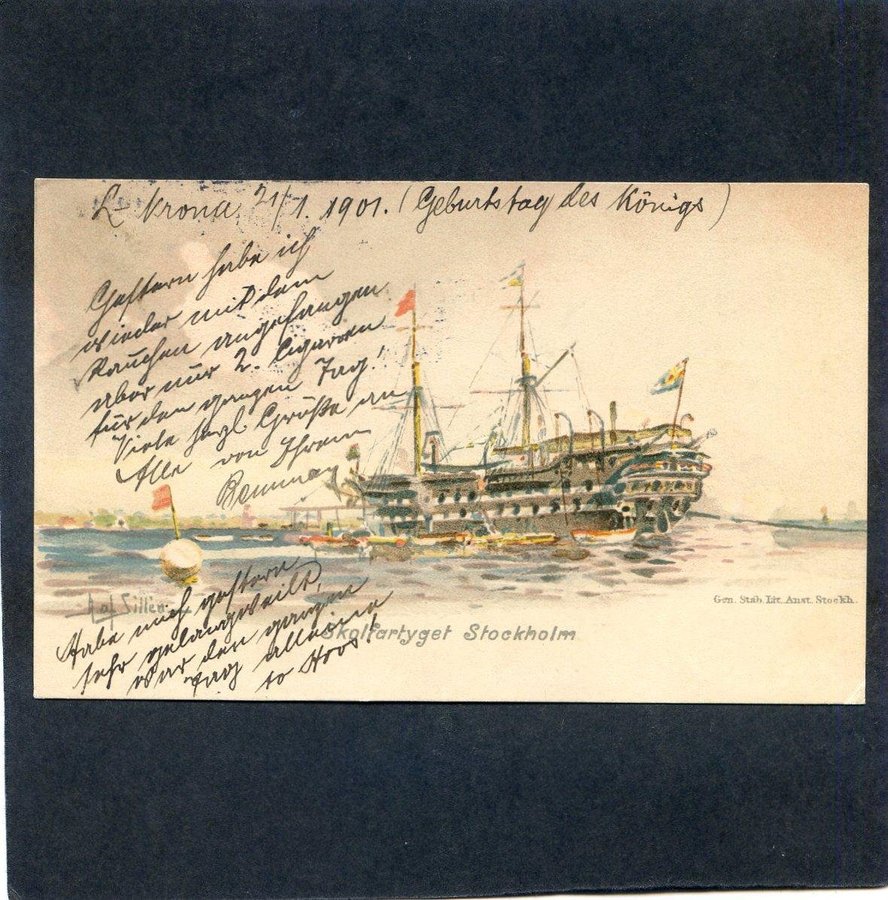 L-krona 21/1. 1901. (Geburtstag des Königs)
Gestern habe ich
wieder mit dem
Rauchen angefangen
aber nur 2. Cigarren
für den ganzen Tag!
Viele herzl Grüße an
Alle von Ihrem
Habe mich gestern
sehr gelangweilt,
war den ganzen
Tag alleine
to Hoos!
Skolfartyget Stockholm
Gen. Stab. Lit. Anst. Stockh.
J. af Sillén